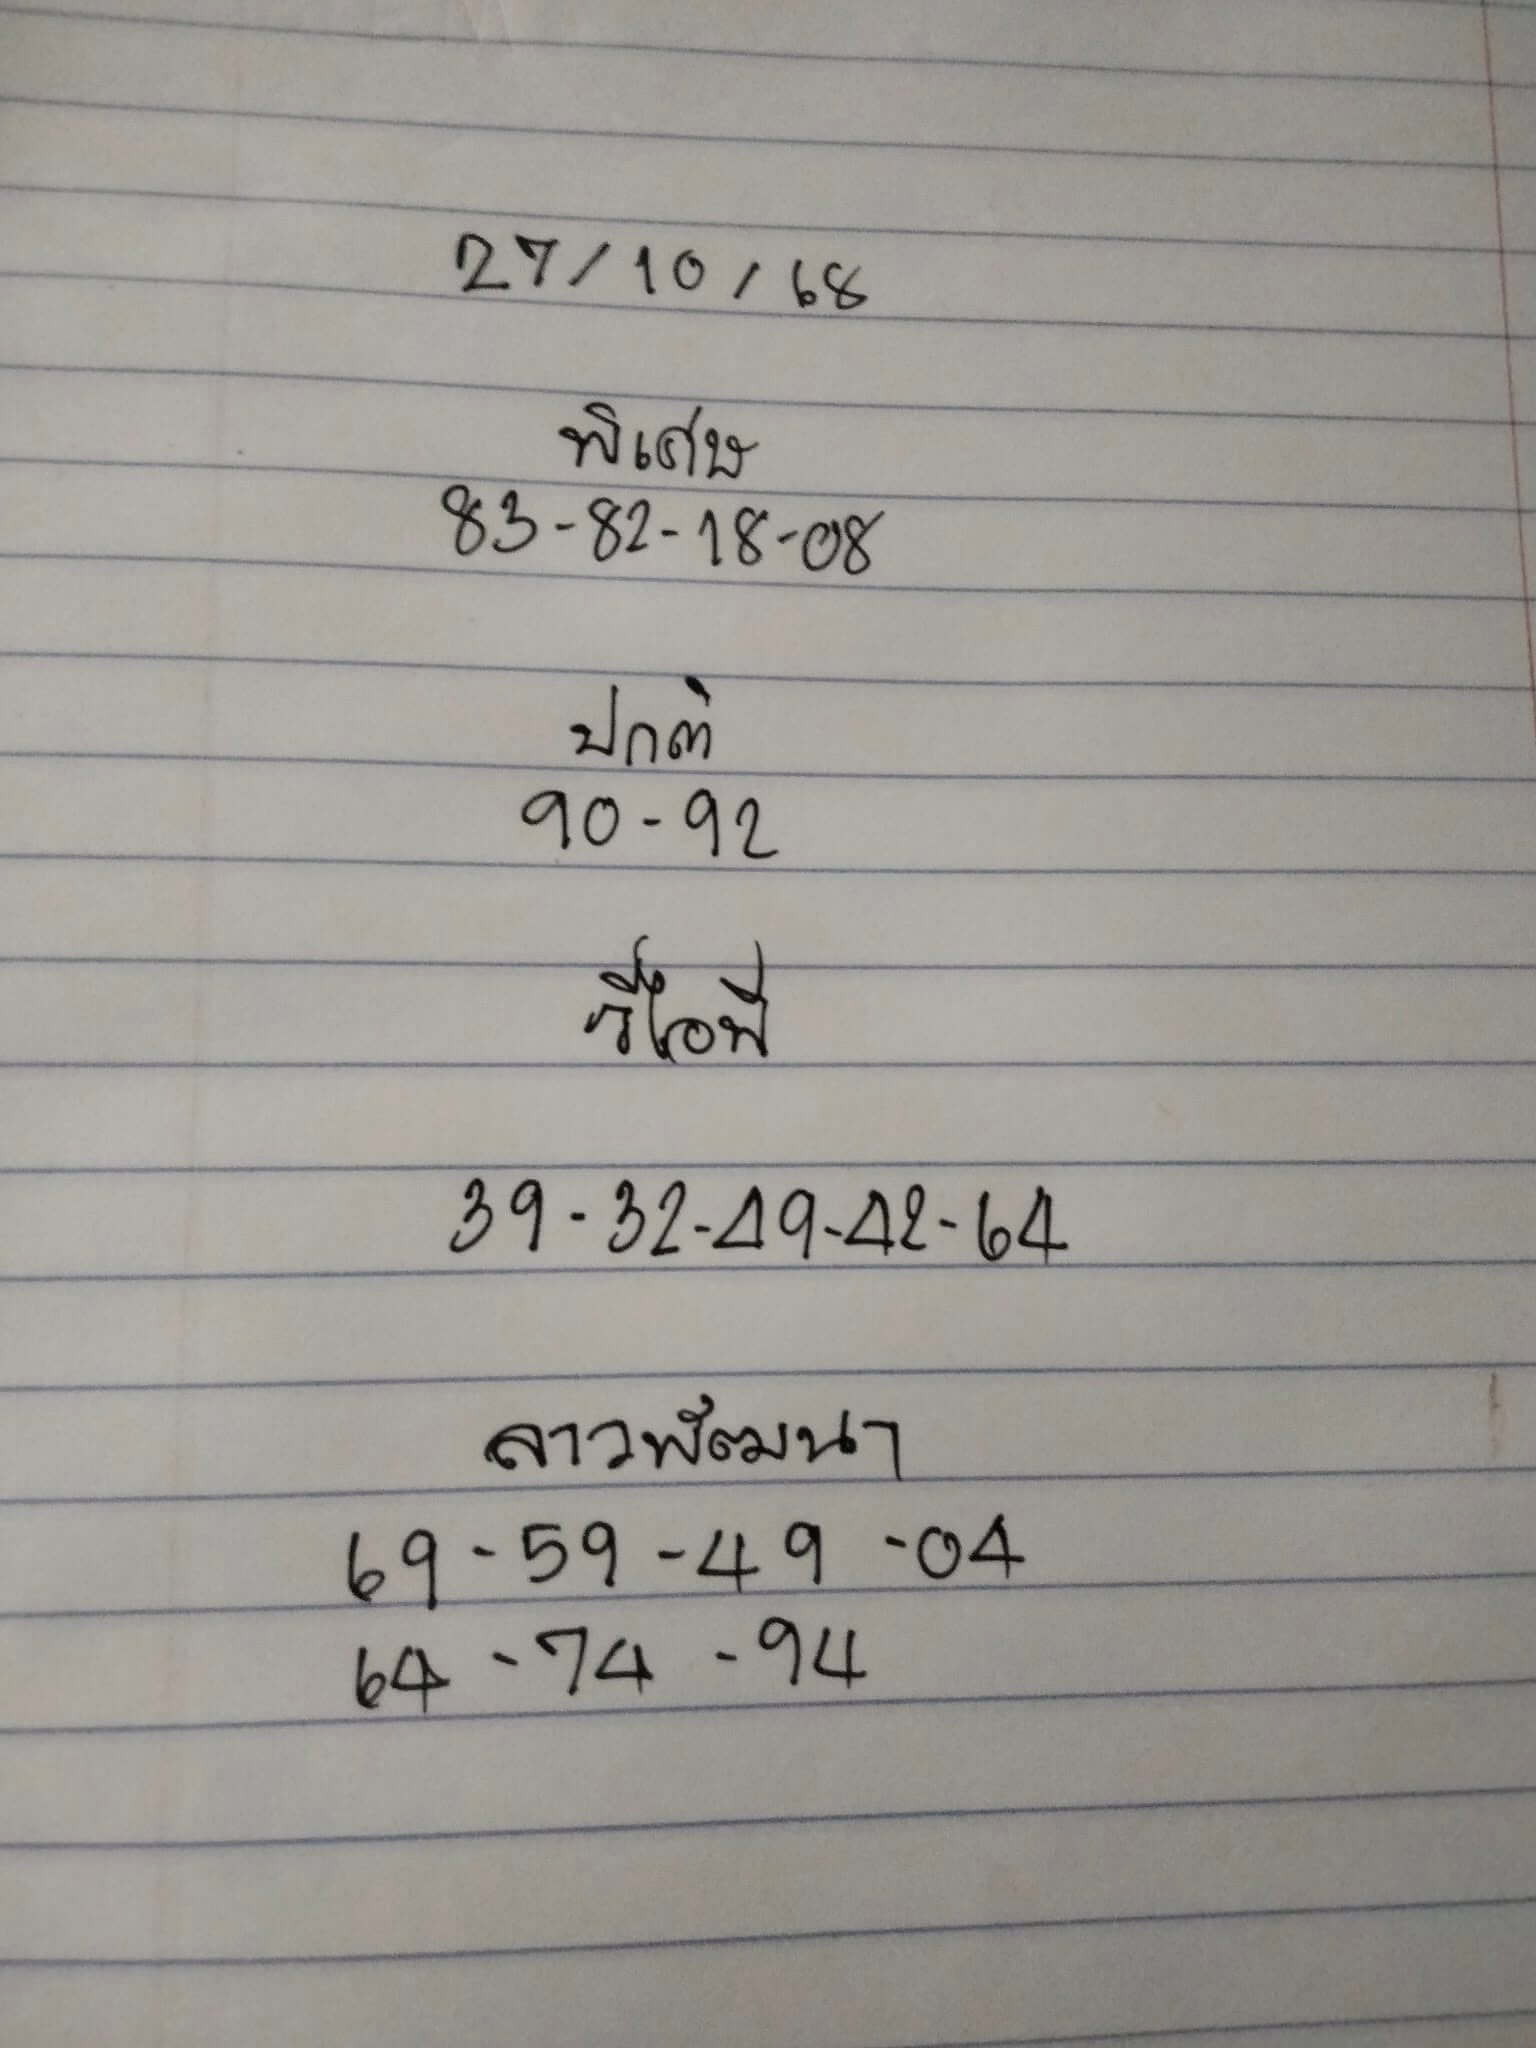 27/10/68
พิเศษ
83-82-18-08
ปกติ
90-92
วีไอพี
39-32-49-42-64
ลาวพัฒนา
69-59-49-04
64-74-94